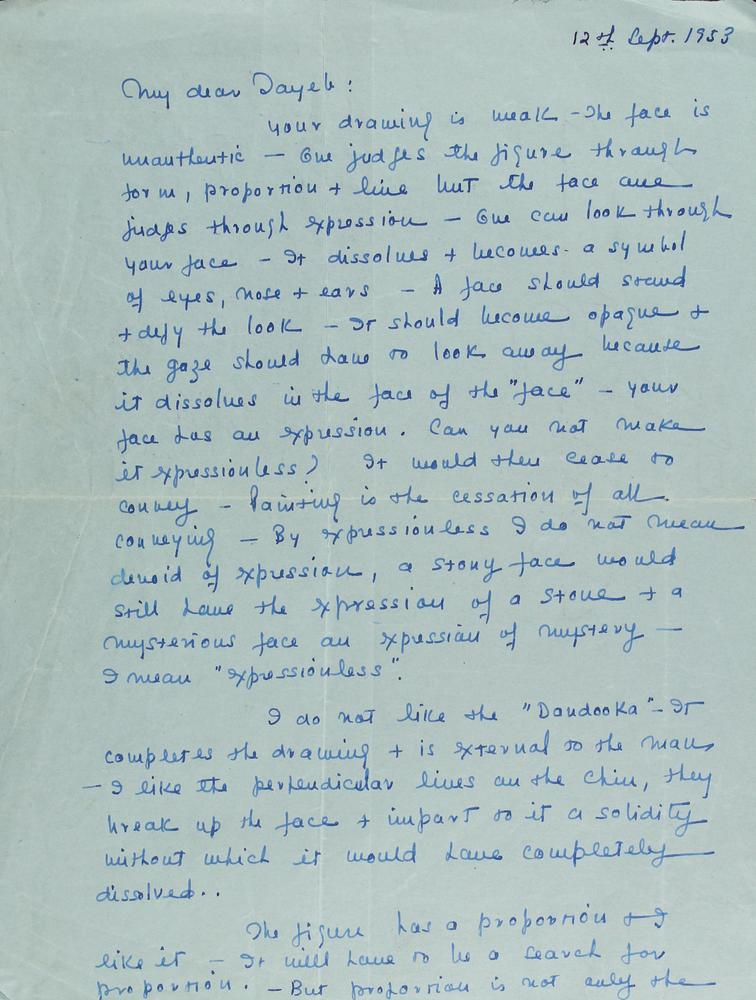 12th Sept. 1953
My dear Tayeb:
Your drawing is weak - The face is
unauthentic — One judges the figure through
form, proportion + line but the face one
judges through expression — One can look through
your face — It dissolves + becomes - a symbol
of eyes, nose + ears — A face should stand
+ defy the look — It should become opaque +
the gaze should have to look away because
it dissolves in the face of the "face" — your
face has an expression. Can you not make
it expressionless? It would then cease to
convey — Painting is the cessation of all
conveying — By expressionless I do not mean
devoid of expression, a stony face would
still have the expression of a stone + a
mysterious face an expression of mystery —
I mean "expressionless".
I do not like the "Dandooka" - It
completes the drawing + is external to the man,
— I like the perpendicular lines on the chin, they
break up the face + impart to it a solidity
without which it would have completely
dissolved..
The figure has a proportion + I
like it — It will have to be a search for
proportion. — But proportion is not only the